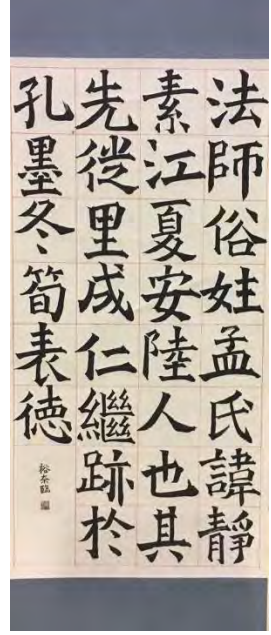 法師俗姓孟氏諱靜
素江夏安陸人也其
先徙里成仁繼跡於
孔墨冬筍表德
裕泰臨